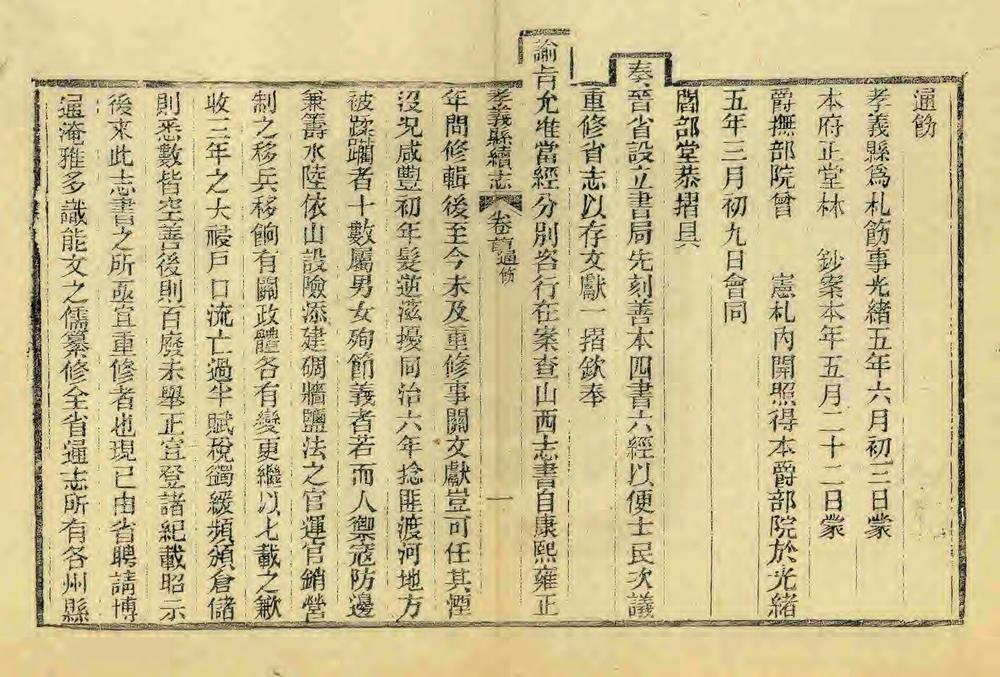 通飭
孝義縣爲札飭事光緒五年六月初三日蒙
本府正堂林 鈔案本年五月二十二日蒙
爵撫部院曾 憲札內開照得本爵部院於光緒
五年三月初九日會同
閻部堂恭摺具
奏晉省設立書局先刻善本四書六經以便士民次議
重修省志以存文獻一摺欽奉
諭旨允准當經分別咨行在案查山西志書自康熙雍正
孝義縣續志 卷首通飭 一
年間修輯後至今未及重修事關文獻豈可任其湮
沒况咸豐初年髮逆滋擾同治六年捻匪渡河地方
被蹂躪者十數屬男女殉節義者若而人禦寇防邊
兼籌水陸依山設險添建碉牆鹽法之官運官銷營
制之移兵移餉有關政體各有變更繼以七載之歉
收三年之大祲戶口流亡過半賦稅蠲緩頻頒倉儲
則悉數皆空善後則百廢未舉正宜登諸紀載昭示
後來此志書之所亟宜重修者也現已由省聘請博
通淹雅多識能文之儒纂修全省通志所有各州縣